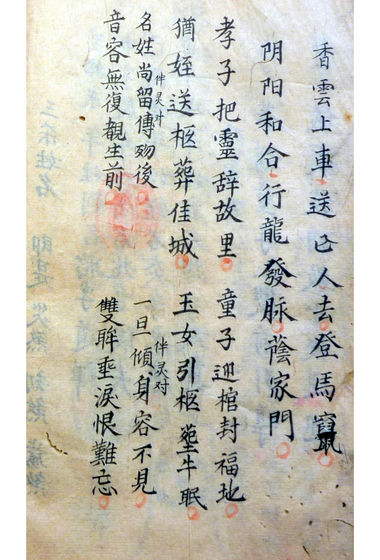 香雲上車送亡人去登馬竄
阴阳和合行龍發脉蔭家門
孝子把靈辞故里童子巡棺封福地
犹姪送柩葬佳城玉女引柩塋牛眠
伴灵对
名姓尚留傳歿後一旦傾身容不見
伴灵对
音容無復覩生前雙眸垂淚恨難忘
三 姓名